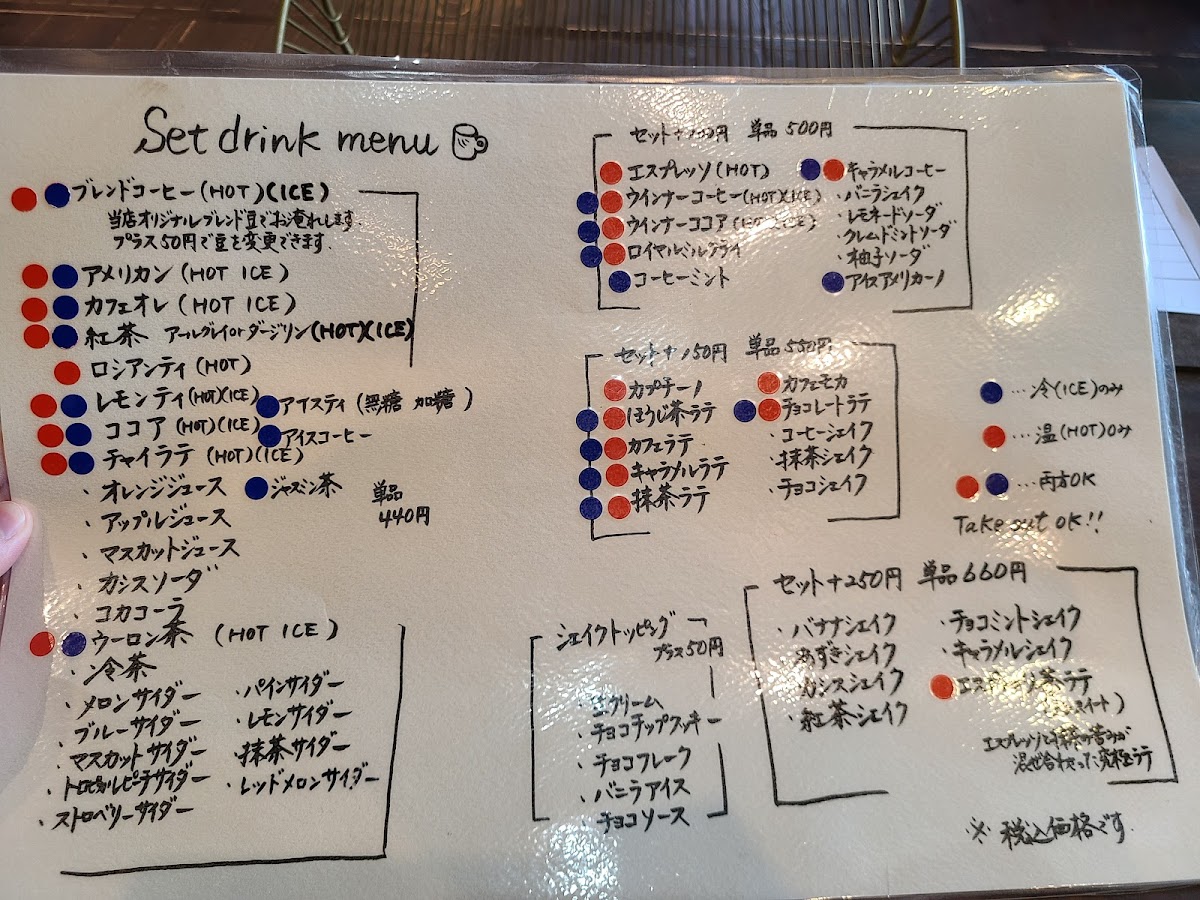 Set drink menu
ブレンドコーヒー(HOT)(ICE)
当店オリジナルブレンド豆でお淹れします.
プラス50円で豆を変更できます.
アメリカン(HOT ICE)
カフェオレ(HOT ICE)
紅茶 アールグレイorダージリン(HOT)(ICE)
ロシアンティ(HOT)
レモンティ(HOT)(ICE)
ココア(HOT)(ICE)
チャイラテ(HOT)(ICE)
アイスティ(無糖 加糖)
アイスコーヒー
・オレンジジュース
ジャスミン茶
単品
440円
・アップルジュース
・マスカットジュース
・カシスソーダ
・コカコーラ
ウーロン茶 (HOT ICE)
・冷茶
・メロンサイダー
・ブルーサイダー
・マスカットサイダー
・トロピカルピーチサイダー
・ストロベリーサイダー
・パインサイダー
・レモンサイダー
・抹茶サイダー
・レッドメロンサイダー
セット+100円 単品500円
エスプレッソ(HOT)
ウインナーコーヒー(HOT)(ICE)
ウインナーココア(HOT)(ICE)
ロイヤルミルクティ
コーヒーミント
キャラメルコーヒー
・バニラシェイク
・レモネードソーダ
・クレムドミントソーダ
・柚子ソーダ
アイスアメリカーノ
セット+150円 単品550円
カプチーノ
ほうじ茶ラテ
カフェラテ
キャラメルラテ
抹茶ラテ
カフェモカ
チョコレートラテ
・コーヒーシェイク
・抹茶シェイク
・チョコシェイク
…冷(ICE)のみ
…温(HOT)のみ
…両方OK
Take out OK!!
シェイクトッピング
プラス50円
・生クリーム
・チョコチップクッキー
・チョコフレーク
・バニラアイス
・チョコソース
セット+250円 単品660円
・バナナシェイク
・あずきシェイク
・カシスシェイク
・紅茶シェイク
・チョコミントシェイク
・キャラメルシェイク
エスプレッソ茶ラテ
スイート)
エスプレッソと抹茶の苦みが
混ぜ合わさった究極ラテ
※ 税込価格です.